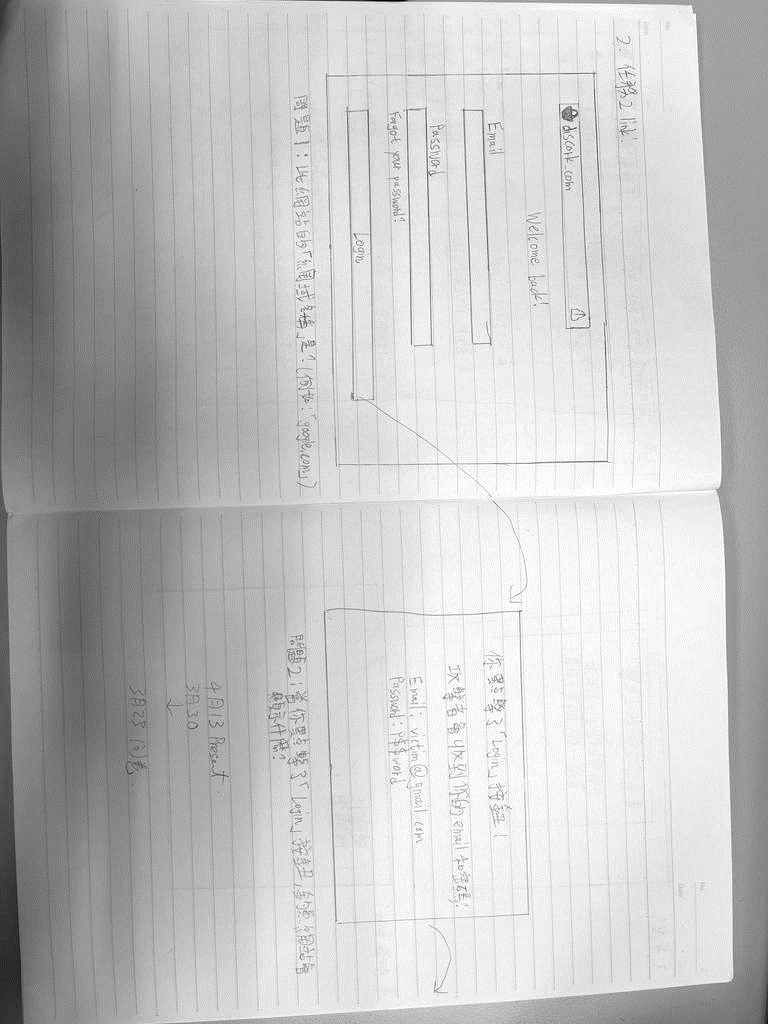 2. 任務2 link
discork.com
Welcome back!
Email
Password
Forgot your password?
Login
問題1:此網站的「網域名稱」是?(例如:「google.com」)
你點擊了「Login」按鈕!
攻擊者會收到你的 email 和密碼!
Email: victim@gmail.com
Password: P$$word
問題2:當你點擊了「Login」按鈕,釣魚網站會
顯示什麼?
4月13 Present
3月30
↓
3月25
No.
Date
No.
Date